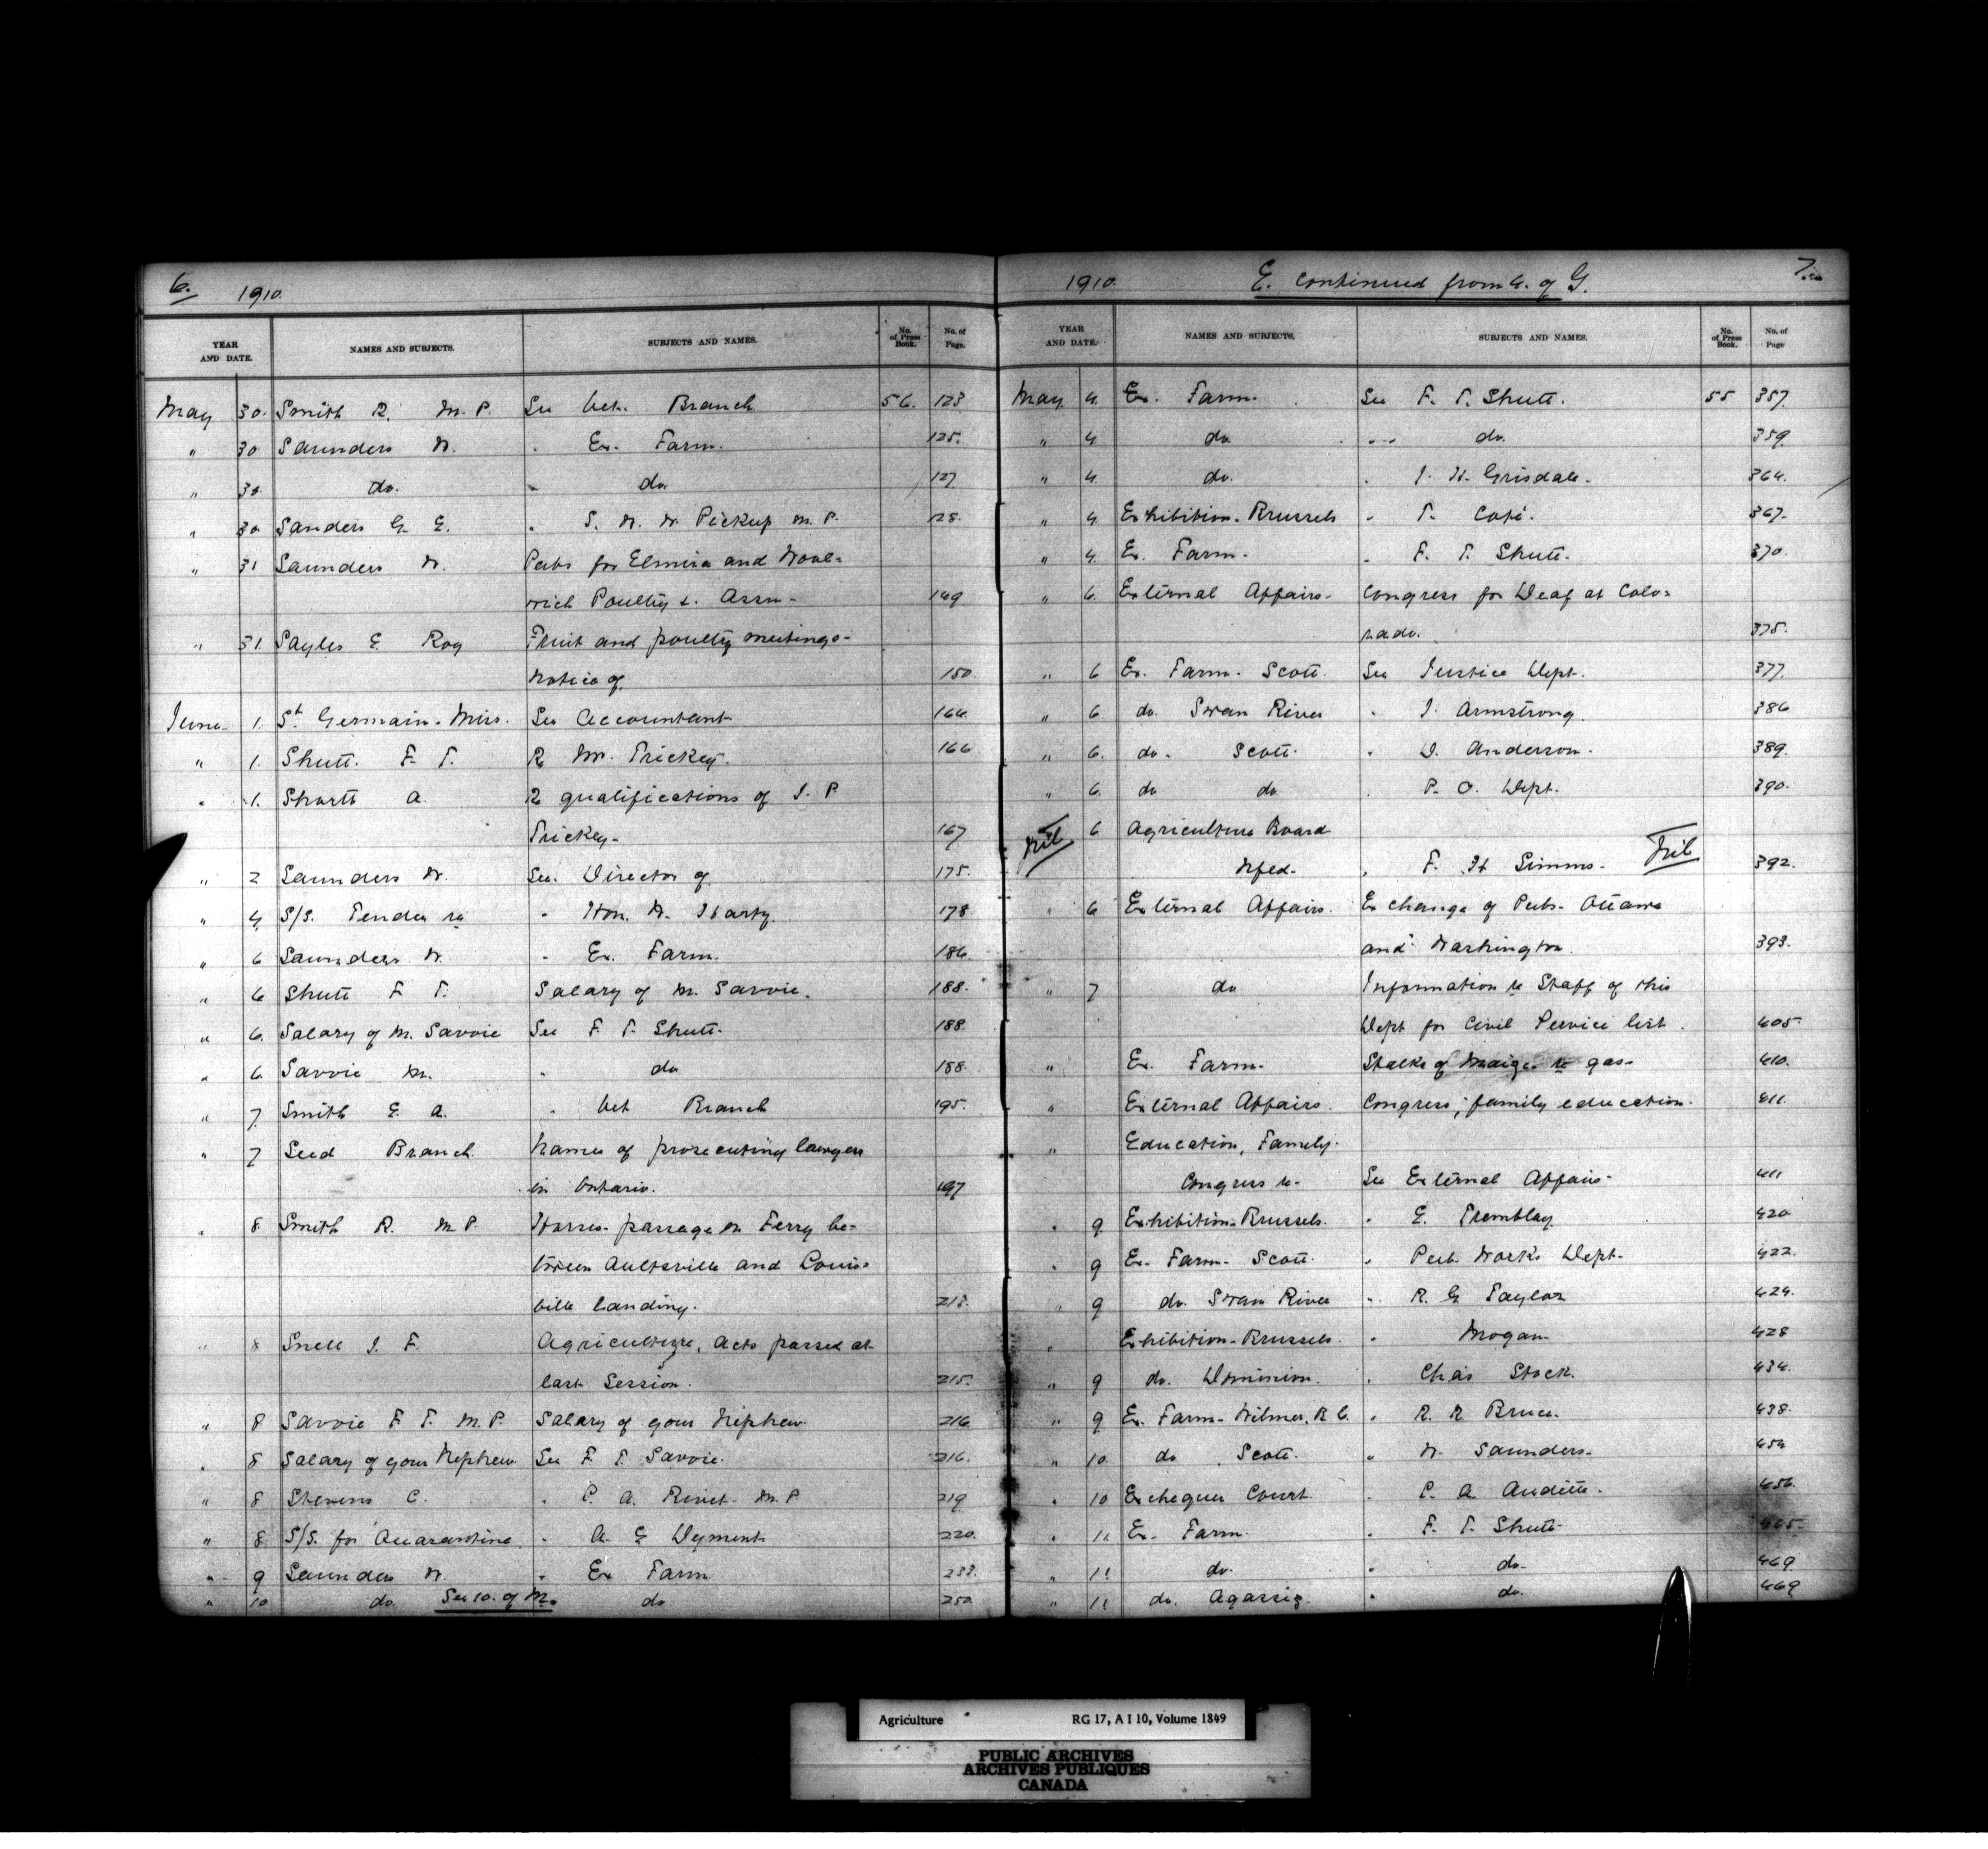 6. 1910.
YEAR AND DATE. NAMES AND SUBJECTS. SUBJECTS AND NAMES. No. of Press Book. No. of Page.
May 30. Smith R. M. P. See Vet. Branch 56. 123
" 30 Saunders W. " Ex. Farm. 125.
" 30. do. " do. 127
" 30 Sanders G. E. " S. W. W. Pickup M. P. 128.
" 31 Saunders W. Pubs for Elmira and Wool=
wich Poultry &. Assn- 149
" 31. Sayles E. Roy Fruit and poultry meetings-
Notice of. 150.
June 1. St. Germain. Miss. See Accountant 164.
" 1. Shutt. F. T. Re Mr. Trickey. 166
" 1. Shortt A. Re qualifications of J. P.
Trickey- 167
" 2 Saunders W. See. Director of 175.
" 4 S/S. Tender re " Hon. W. Harty. 178
" 6 Saunders W. " Ex. Farm. 186
" 6 Shutt F. T. Salary of M. Savoie. 188.
" 6. Salary of M. Savoie See F. T. Shutt. 188.
" 6. Savoie M. " do 188.
" 7. Smith E. A. " Vet Branch 195.
" 7 Seed Branch Names of prosecuting lawyers
in Ontario. 197
" 8. Smith R. M. P. Horses- passage on Ferry be=
tween Aultsville and Louis=
ville Landing. 213.
" 8 Snell J. F. Agriculture, Acts passed at
last Session. 215.
" 8 Savoie F. T. M. P. Salary of your Nephew 216.
" 8 Salary of your Nephew See F. T. Savoie. 216.
" 8 Stevens C. " C. A. Rivet. M. P. 219
" 8. S/S. for Quarantine " A. E Dyment 220.
" 9 Saunders W. " Ex Farm 233.
" 10 do. See 10. of M. do 250.
1910. E. continued from 4. of G. 7.
YEAR AND DATE. NAMES AND SUBJECTS. SUBJECTS AND NAMES. No. of Press Book. No. of Page
May 4. Ex. Farm. See F. T. Shutt. 55 357.
" 4 do. " do. 359.
" 4. do. " J. H. Grisdale. 364.
" 4 Exhibition- Brussels " T. Coté. 367.
" 4. Ex. Farm. " F. T. Shutt. 370.
" 6. External Affairs- Congress for Deaf at Colo=
rado. 375.
" 6 Ex. Farm- Scott. See Justice Dept. 377.
" 6 do. Swan River " J. Armstrong. 386
" 6. do. Scott. " D. Anderson. 389.
" 6. do do. " P. O. Dept. 390.
6 Agriculture Board
Nfld. " F. H Simms- 392.
" 6 External Affairs. Exchange of Pubs- Ottawa
and Washington. 393.
" 7 do Information re Staff of this
Dept for Civil Service list. 405.
" Ex. Farm. Stalks of Maize re gas- 410.
" External Affairs. Congress; family education. 411.
" Education, Family.
Congress re- See External Affairs- 411
" 9 Exhibition- Brussels. " E. Tremblay. 420
" 9 Ex- Farm- Scott. " Pub. Works Dept- 422.
" 9 do. Swan River " R. G Taylor 424.
" Exhibition- Brussels. " Mogan 428
" 9 do. Dominion. " Chas Stock. 434.
" 9 Ex. Farm- Wilmer, B. C. " R. R Bruce. 438.
" 10. do Scott. " W. Saunders. 454
" 10 Exchequer Court. " C. A Audette. 456.
" 11. Ex- Farm. " F. T. Shutt. 465.
" 11 do. " do. 469
" 11 do. Agassiz. " do. 469
Agriculture RG 17, A I 10, Volume 1849
PUBLIC ARCHIVES
ARCHIVES PUBLIQUES
CANADA